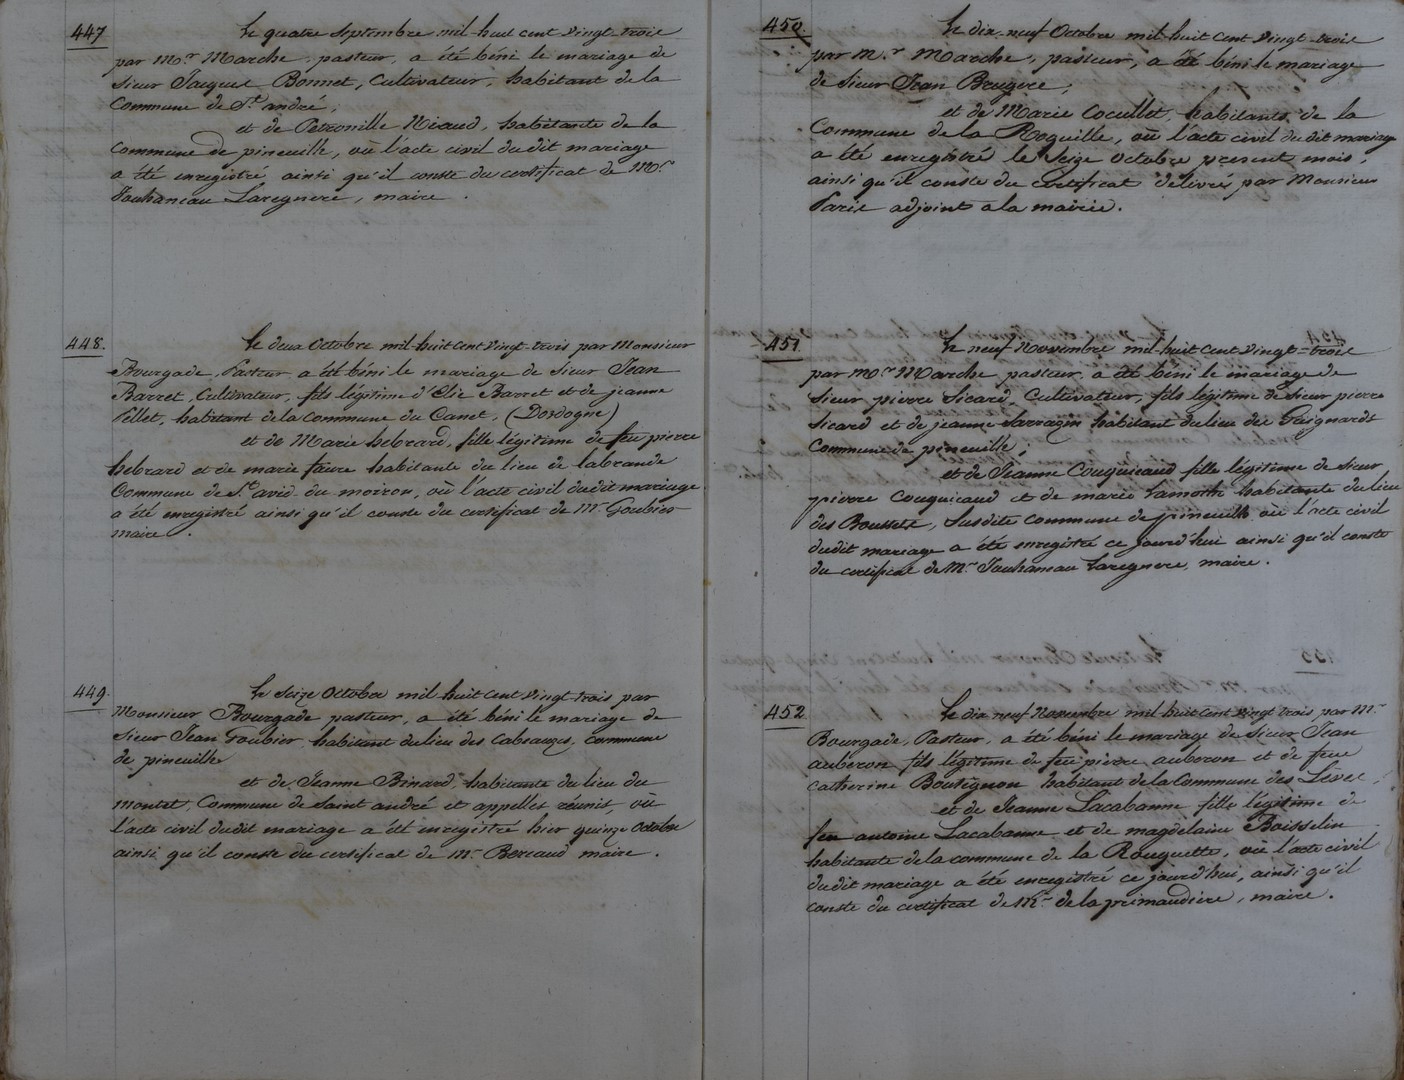 447
Le quatre Septembre mil-huit cent vingt-trois
par Mor. Marche, pasteur, a été béni le mariage de
Sieur Jacques Bonnet, Cultivateur, habitant de la
Commune de St. andré,
et de Petronille Niaud, habitante de la
Commune de pineuilh, où l'acte civil du dit mariage
a été enregistré ainsi qu'il conste du certificat de Mr.
Jauhaneau Laregnere, maire.
448.
Le deux Octobre mil-huit cent vingt-trois par Monsieur
Bourgade, Pasteur a été béni le mariage de Sieur Jean
Barret, Cultivateur, fils légitime d'Elie Barret et de jeanne
Pillet, habitant de la Commune du Canet, (Dordogne)
et de Marie hebrard, fille légitime de feu pierre
hebrard et de marie faure habitante du lieu de labrande
Commune de St. avid du moiron, où l'acte civil dudit mariage
a été enregistré ainsi qu'il conste du certificat de Mr. Goubier
maire.
449.
Le Seize Octobre mil huit cent vingt-trois par
Monsieur Bourgade pasteur, a été béni le mariage de
Sieur Jean Goubier, habitant du lieu des Cabeauzes, Commune
de pineuilh
et de Jeanne Binard, habitante du lieu du
montet, Commune de Saint andré et appelles réunis, où
l'acte civil dudit mariage a été enregistré hier quinze Octobre
ainsi qu'il conste du certificat de Mr. Bereaud maire.
450.
Le dix-neuf Octobre mil-huit cent vingt-trois
par M.r Marche, pasteur, a été béni le mariage
de Sieur Jean Brugere,
et de Marie Cocullet, habitants de la
Commune de la Roquille, où l'acte civil du dit mariage
a été enregistré le Seize Octobre present mois,
ainsi qu'il conste du certificat délivré par Monsieur
Paris adjoint a la mairie.
451
Le neuf Novembre mil-huit cent vingt-trois
par Mr. Marche pasteur, a été béni le mariage de
Sieur pierre Sicard, Cultivateur, fils légitime de Sieur pierre
Sicard et de jeanne Sarrazin habitant du lieu des Guignards
Commune de pineuilh;
et de Jeanne Couquicaud fille légitime de Sieur
pierre Couquicaud et de marie Lamothe habitante du lieu
des Boussete, Susdite Commune de pineuilh où l'acte civil
dudit mariage a été enregistré ce jourd'hui ainsi qu'il conste
du certificat de Mr. Jauhaneau Laregnere, maire.
452
Le dix neuf Novembre mil huit cent vingt trois par Mr.
Bourgade, Pasteur, a été béni le mariage de Sieur Jean
auberon fils légitime de feu pierre auberon et de feue
Catherine Boutignon habitant de la Commune des Léves,
et de Jeanne Lacabanne fille légitime de
feu antoine Lacabanne et de magdelaine Boisselin
habitante de la commune de la Rouquette, où l'acte civil
dudit mariage a été enregistré ce jourd'hui, ainsi qu'il
conste du certificat de Mr. de la primaudiere, maire.